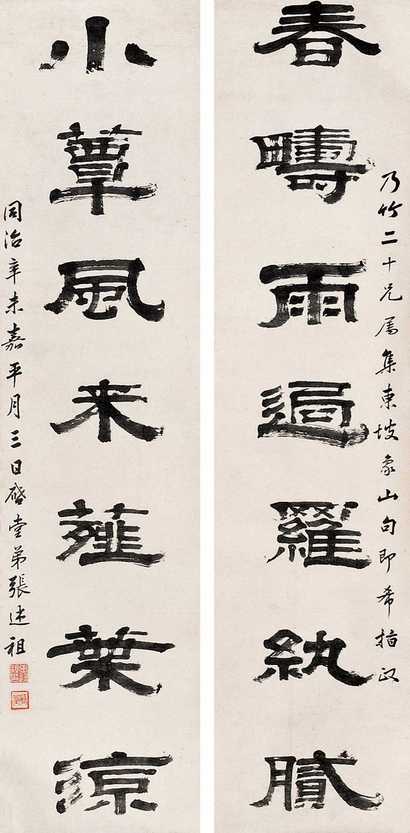 春疇雨過羅紈膩
乃竹二十兄属集東坡象山句即希指政
小簟風来薤葉涼
同治辛未嘉平月三日啓堂弟張述祖